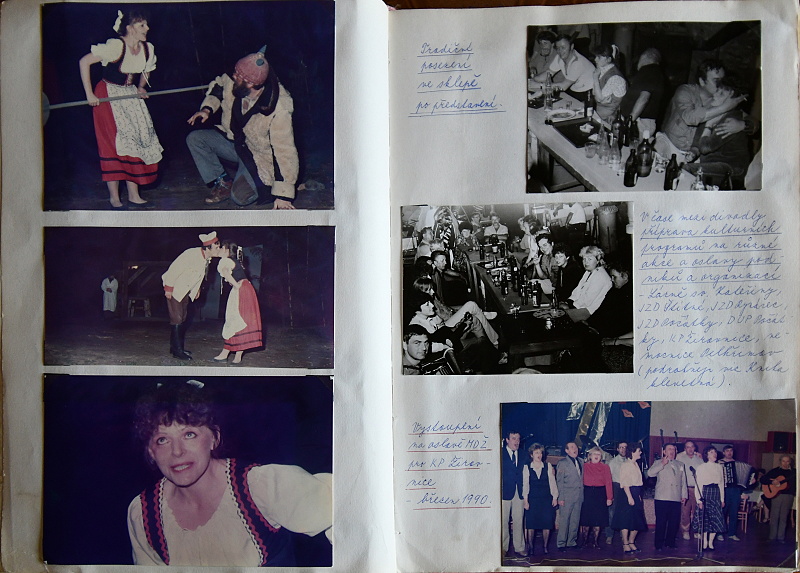 Tradiční
posezení
ve sklepě
po představení.
V čase mezi divadly
příprava kulturních
programů na různé
akce a oslavy pod-
niků a organizací
- Lázně sv. Kateřiny,
JZD Útěchovičky, JZD
JZD Počátky, DUP Počát-
ky, KP Žirovnice, ne-
mocnice Pelhřimov
(podrobněji viz Kniha
Vystoupení
na oslavě MDŽ
pro KP Žirov-
nice
- březen 1990.